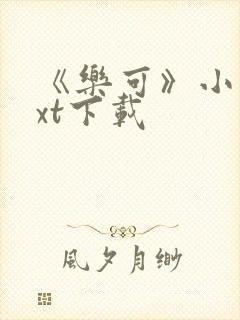 《樂可》小
xt下載
風夕月緲